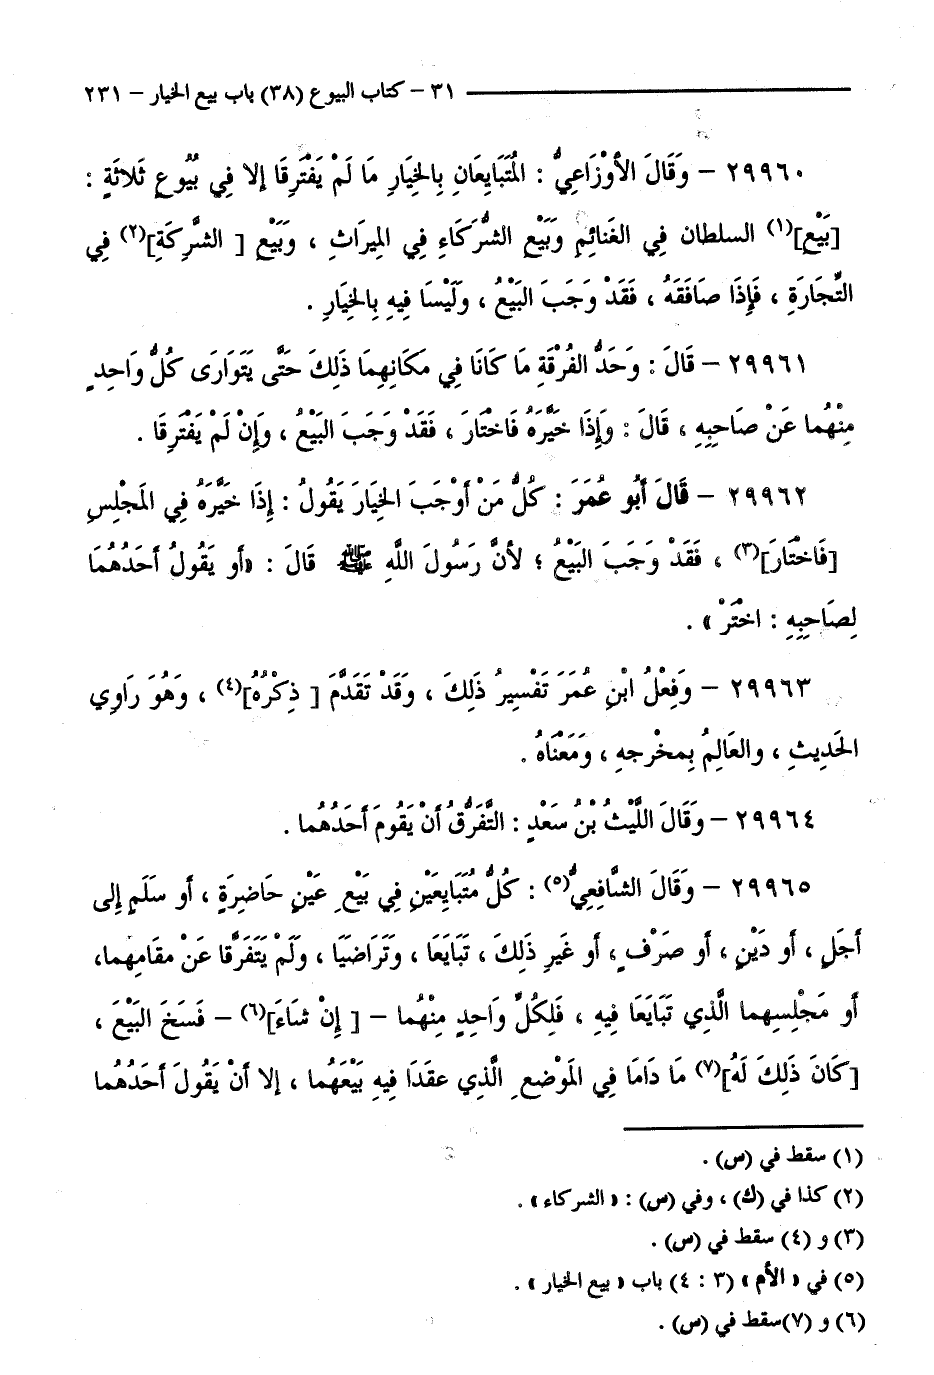 ٣١ – كتاب البيوع (٣٨) باب بيع الخيار – ٢٣١
٢٩٩٦٠ – وَقَالَ الأوْزَاعِيُّ : المُتَبَايِعَانِ بِالخِيَارِ مَا لَمْ يَفْتَرِقَا إلا فِي بُيُوعٍ ثَلاثَةٍ :
[بَيْعِ](١) السلطان فِي الغَنائِمِ وَبَيْعِ الشُّرَكَاءِ فِي المِيرَاثِ ، وَبَيْعِ [ الشَّرِكَةِ](٢) فِي
التِّجَارَةِ ، فَإِذَا صَافَقَهُ ، فَقَدْ وَجَبَ البَيْعُ ، وَلَيْسَا فِيهِ بِالخِيَارِ .
٢٩٩٦١ – قَالَ : وَحَدُّ الفُرْقَةِ مَا كَانَا فِي مَكَانِهِمَا ذَلِكَ حَتَّى يَتَوَارَى كُلُّ وَاحِدٍ
مِنْهُما عَنْ صَاحِبِهِ ، قَالَ : وَإِذَا خَيَّرَهُ فَاخْتَارَ ، فَقَدْ وَجَبَ البَيْعُ ، وَإِنْ لَمْ يَفْتَرِقَا .
٢٩٩٦٢ – قَالَ أَبُو عُمَرَ : كُلُّ مَنْ أوْجَبَ الخِيَارَ يَقُولُ : إِذَا خَيَّرَهُ فِي المَجْلِسِ
[فَاخْتَارَ](٣) ، فَقَدْ وَجَبَ البَيْعُ ؛ لأنَّ رَسُولَ اللَّهِ ﷺ قَالَ : «أو يَقُولُ أحَدُهُمَا
لِصَاحِبِهِ : اخْتَرْ » .
٢٩٩٦٣ – وَفِعْلُ ابْنِ عُمَرَ تَفْسِيرُ ذَلِكَ ، وَقَدْ تَقَدَّمَ [ ذِكْرُهُ](٤) ، وَهُوَ رَاوِي
الحَدِيثِ ، والعَالِمُ بِمخْرجهِ ، وَمَعْنَاهُ .
٢٩٩٦٤ – وَقَالَ اللَّيْثُ بْنُ سَعْدٍ : التَّفَرُّقُ أَنْ يَقُومَ أحَدُهُما .
٢٩٩٦٥ – وَقَالَ الشَّافِعِيُّ(٥) : كُلُّ مُتَبَايِعَيْنِ فِي بَيْعِ عَيْنٍ حَاضِرَةٍ ، أو سَلَمٍ إِلى
أجَلٍ ، أو دَيْنٍ ، أو صَرْفٍ ، أو غَيرِ ذَلِكَ ، تَبَايَعَا ، وَتَرَاضَيَا ، وَلَمْ يَتَفَرَّقا عَنْ مقامِهما،
أو مَجْلِسِهما الَّذِي تَبَايَعَا فِيهِ ، فَلِكُلِّ وَاحِدٍ مِنْهُما – [ إِنْ شاءَ](٦) – فَسَخَ البَيْعَ ،
[كَانَ ذَلِكَ لَهُ](٧) مَا دَامَا فِي المَوْضعِ الَّذِي عقَدَا فِيهِ بَيْعَهُما ، إلا أنْ يَقُولَ أحَدُهُما
(١) سقط في (س) .
(٢) كذا في (ك) ، وفي (س) : « الشركاء » .
(٣) و (٤) سقط في (س) .
(٥) في « الأم » (٣ : ٤) باب « بيع الخيار » .
(٦) و (٧)سقط في (س) .